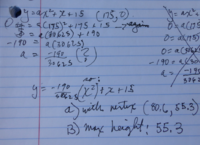 y = ax² + x + 15 (175, 0)
0 = a(175)² + 175 + 15
= a(30625) + 190
-190 = a(30625)
a = -190/30625
so:
y = -190/30625 (x²) + x + 15
a) with vertex (80.6, 55.3)
B) max height: 55.3
0 = a(
0 = a(
-190 = a
a = -190